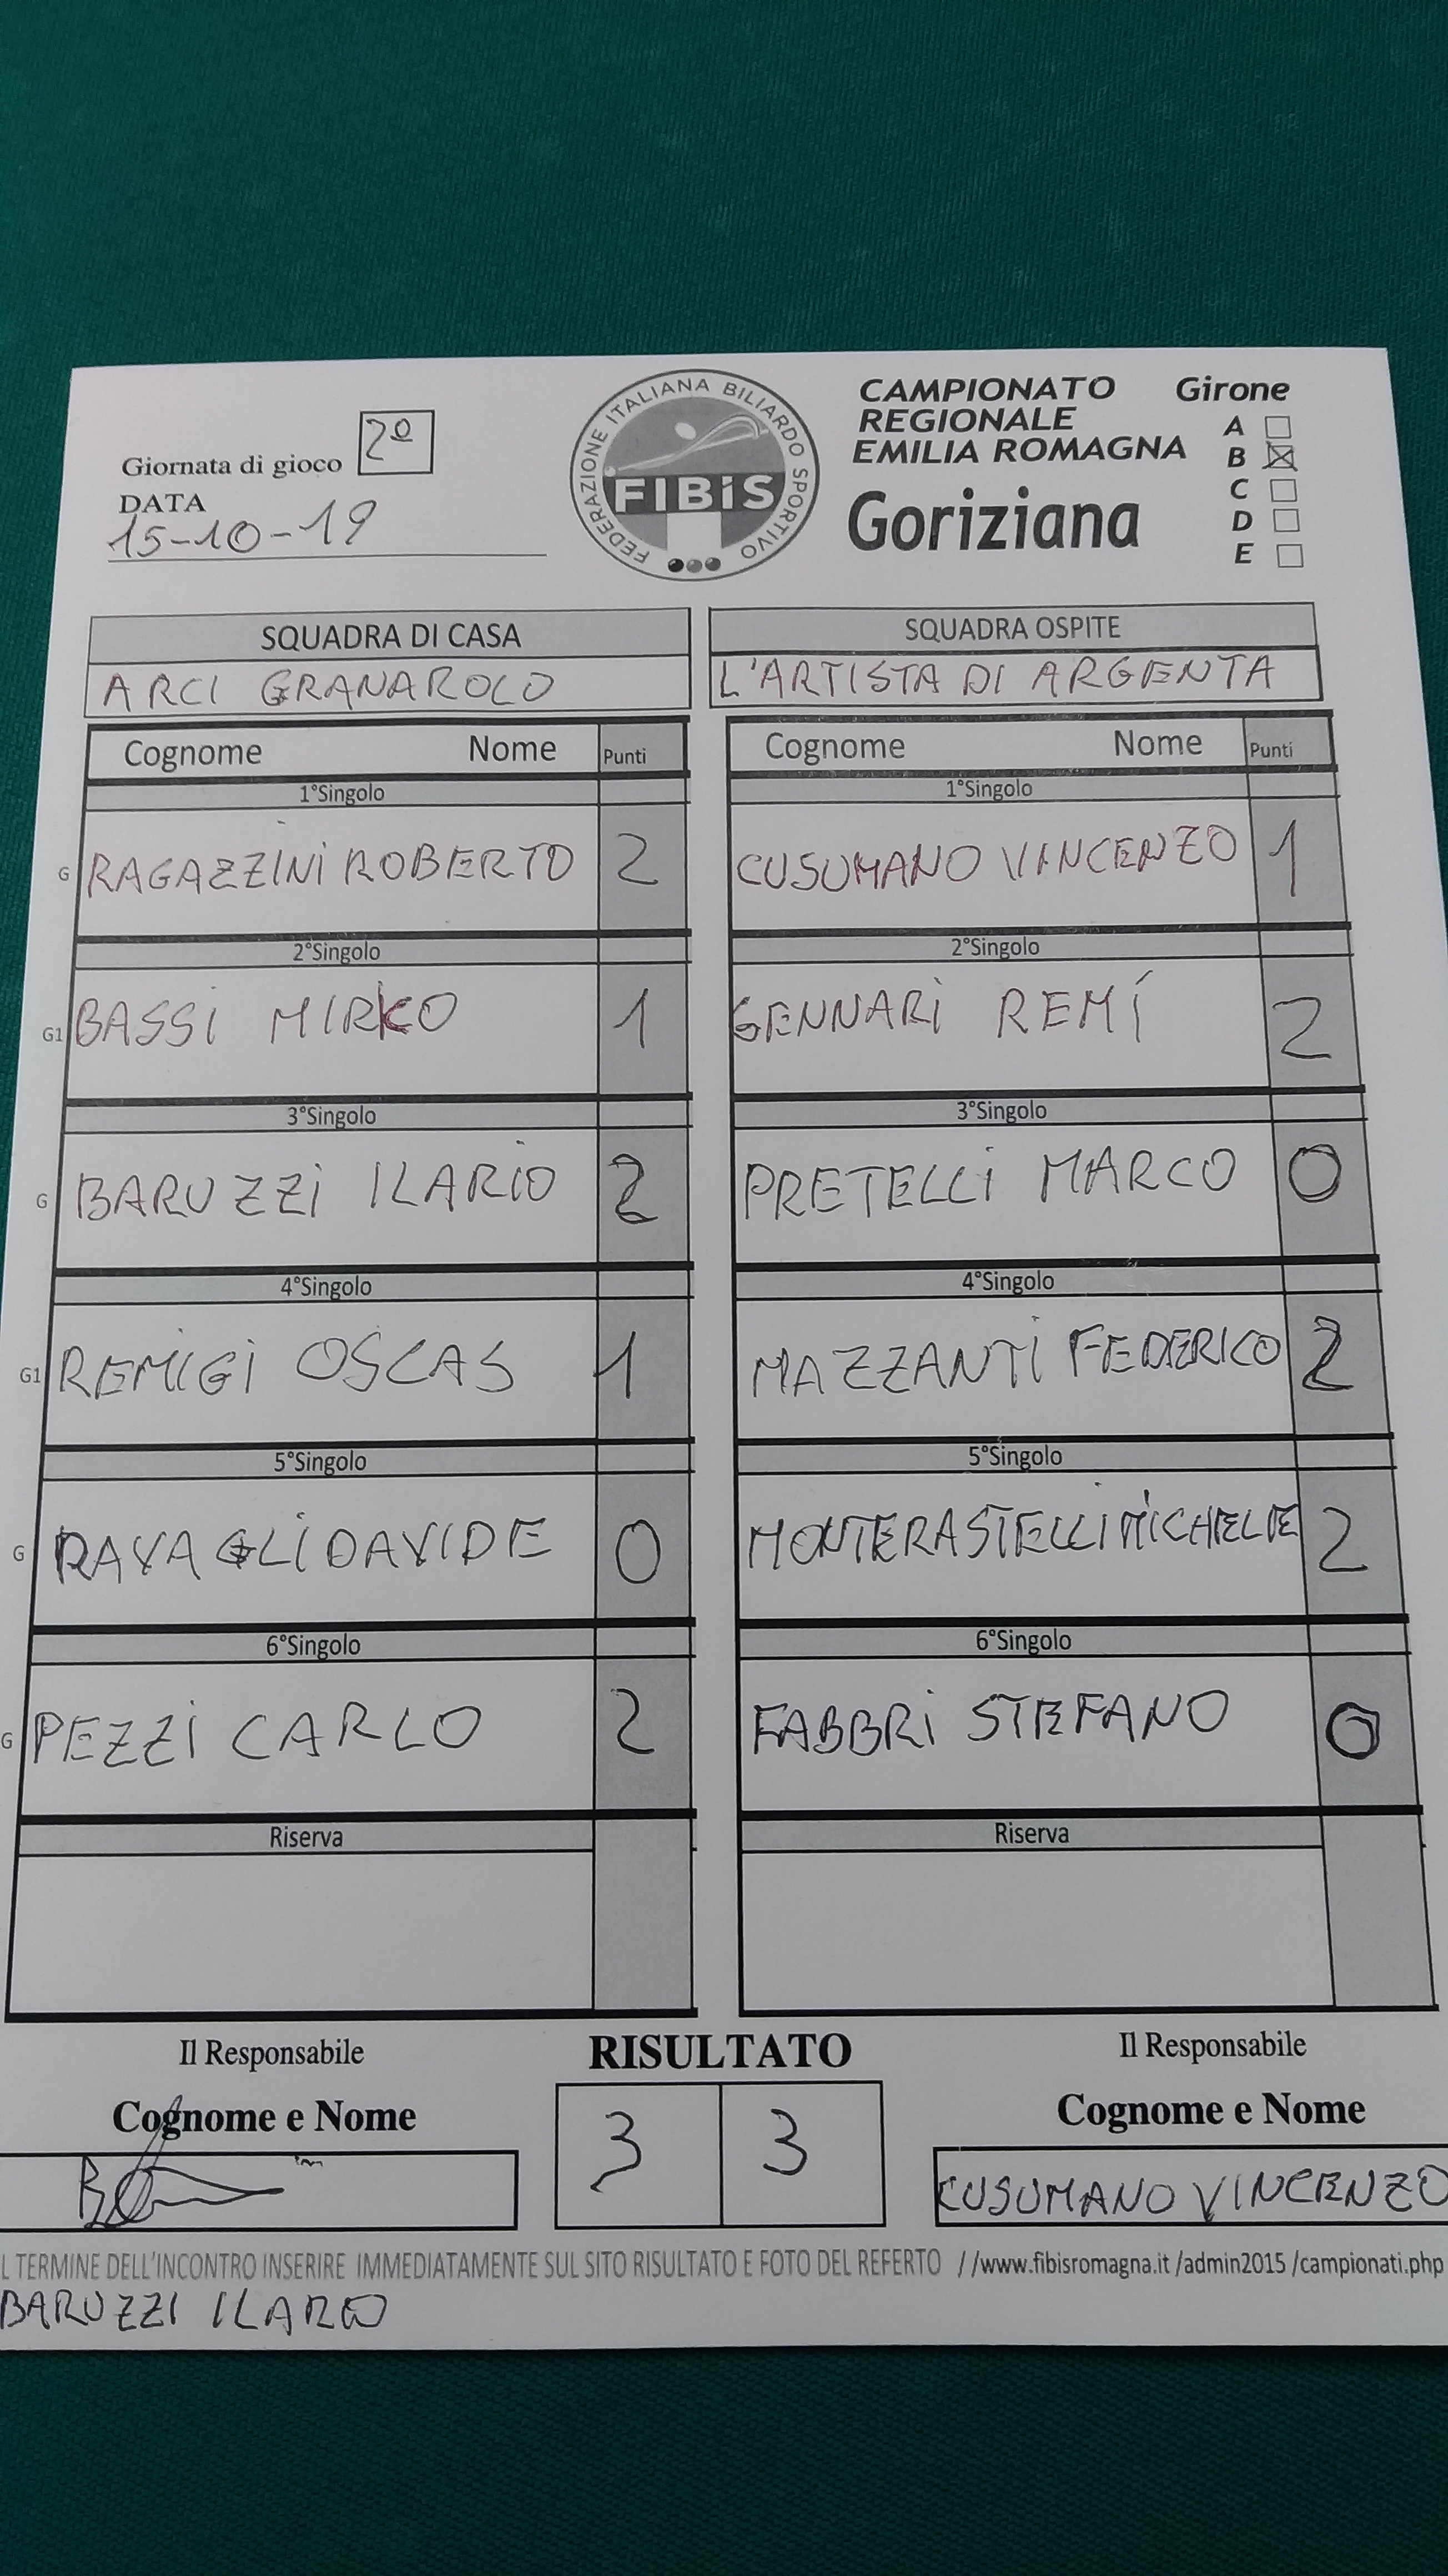 Giornata di gioco 2º
DATA
15-10-19
FEDERAZIONE ITALIANA BILIARDO SPORTIVO
FIBiS
CAMPIONATO
REGIONALE
EMILIA ROMAGNA
Goriziana
Girone
A
B
C
D
E
SQUADRA DI CASA
ARCI GRANAROLO
SQUADRA OSPITE
L'ARTISTA DI ARGENTA
Cognome Nome Punti
Cognome Nome Punti
1°Singolo
1°Singolo
G RAGAZZINI ROBERTO 2
CUSUMANO VINCENZO 1
2°Singolo
2°Singolo
G1 BASSI MIRKO 1
GENNARI REMÍ 2
3°Singolo
3°Singolo
G BARUZZI ILARIO 2
PRETELLI MARCO 0
4°Singolo
4°Singolo
G1 REMIGI OSCAS 1
MAZZANTI FEDERICO 2
5°Singolo
5°Singolo
G RAVAGLI DAVIDE 0
MONTERASTELLI MICHELE 2
6°Singolo
6°Singolo
G PEZZI CARLO 2
FABBRI STEFANO 0
Riserva
Riserva
Il Responsabile
RISULTATO
Il Responsabile
Cognome e Nome
3 3
Cognome e Nome
CUSUMANO VINCENZO
L TERMINE DELL'INCONTRO INSERIRE IMMEDIATAMENTE SUL SITO RISULTATO E FOTO DEL REFERTO //www.fibisromagna.it /admin2015 /campionati.php
BARUZZI ILARIO